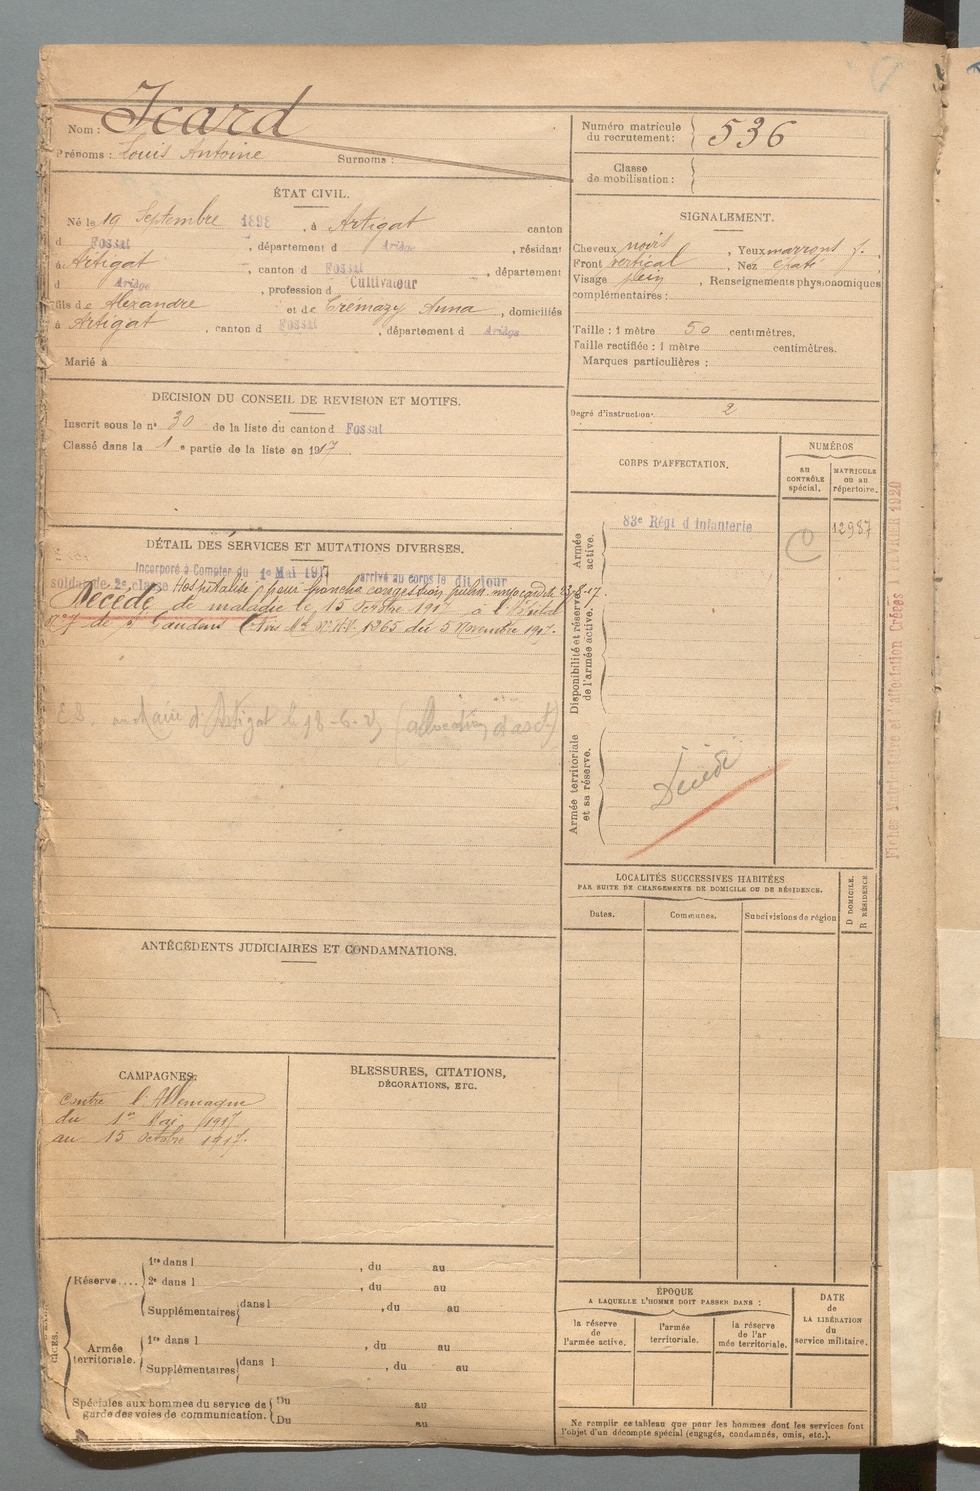 Nom : Icard
Prénoms : Louis Antoine Surnoms :
Numéro matricule du recrutement : 536
Classe de mobilisation :
ÉTAT CIVIL.
Né le 19 Septembre 1898, à Artigat canton
d Fossat, département d Ariège, résidant
à Artigat, canton d Fossat, département
d Ariège, profession d Cultivateur
fils de Alexandre et de Crémazy Anna, domiciliés
à Artigat, canton d Fossat, département d Ariège
Marié à
SIGNALEMENT.
Cheveux noirs, Yeux marrons f.
Front vertical, Nez épaté
Visage plein, Renseignements physionomiques
complémentaires :
Taille : 1 mètre 50 centimètres.
Taille rectifiée : 1 mètre centimètres.
Marques particulières :
Degré d'instruction. 2
DÉCISION DU CONSEIL DE REVISION ET MOTIFS.
Inscrit sous le n° 30 de la liste du canton d Fossat
Classé dans la 1e partie de la liste en 1917.
DÉTAIL DES SERVICES ET MUTATIONS DIVERSES.
Incorporé à Compter du 1e Mai 1917 arrivé au corps le dit jour
soldat de 2e classe Hospitalisé pour broncho congestion pulm. 23-8-17.
Décédé de maladie le 15 Octobre 1917 à l'Hôpital
n°7 de St Gaudens Avis Mel 1365 du 5 Novembre 1917.
au Maire d'Artigat le 18-6-25 (allocation d'asct)
CORPS D'AFFECTATION.
NUMÉROS
AU CONTRÔLE spécial.
MATRICULE OU AU répertoire.
Armée active.
83e Régt d'infanterie
C
12987
Disponibilité et réserve de l'armée active.
Armée territoriale et sa réserve.
Décédé
Fiches Matriculaire et d'affectation Créées 1920
LOCALITÉS SUCCESSIVES HABITÉES
PAR SUITE DE CHANGEMENTS DE DOMICILE OU DE RÉSIDENCE.
Dates. Communes. Subdivisions de région
D DOMICILE.
R RÉSIDENCE
ANTÉCÉDENTS JUDICIAIRES ET CONDAMNATIONS.
CAMPAGNES.
Contre l'Allemagne
du 1er Mai 1917
au 15 Octobre 1917.
BLESSURES, CITATIONS,
DÉCORATIONS, ETC.
Réserve....
1re dans l , du au
2e dans l , du au
Supplémentaires dans l , du au
Armée territoriale.
1re dans l , du au
Supplémentaires dans l , du au
Spéciales aux hommes du service de garde des voies de communication.
Du au
Du au
ÉPOQUE
A LAQUELLE L'HOMME DOIT PASSER DANS :
la réserve de l'armée active.
l'armée territoriale.
la réserve de l'ar mée territoriale.
DATE de LA LIBÉRATION du service militaire.
Ne remplir ce tableau que pour les hommes dont les services font
l'objet d'un décompte spécial (engagés, condamnés, omis, etc.).